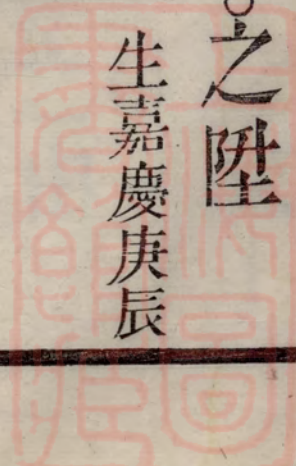 之陞
生嘉慶庚辰